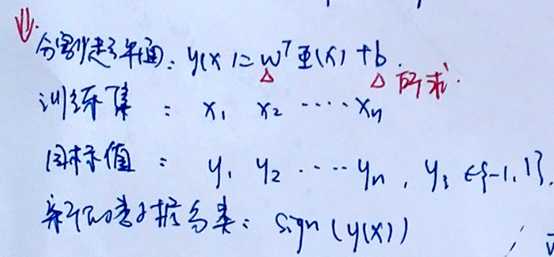 分割超平面: y(x) = wᵀΦ(x) + b. 所求.
训练集 : x₁ x₂ ····· xₙ
目标值 : y₁ y₂ ····· yₙ , yᵢ ∈{-1, 1}.
新的数据分类: sign (y(x))